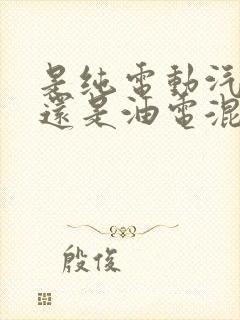 是純電動汽
還是油電混
殷俊